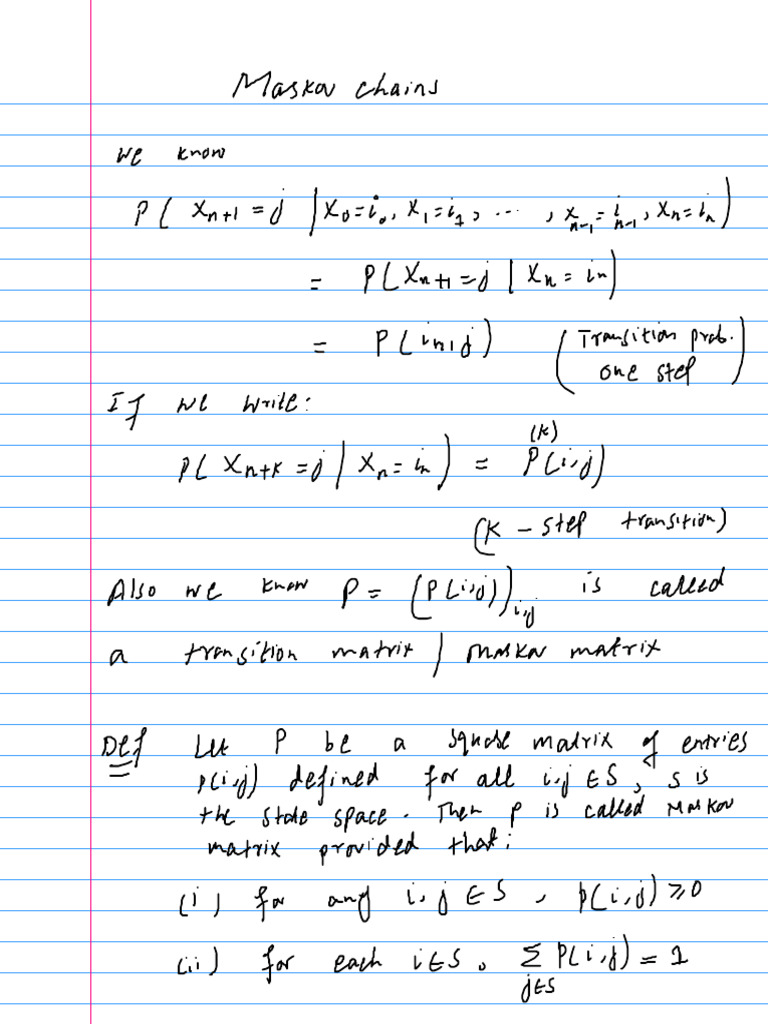 Markov chains
we know
P( X_{n+1} = j | X_0 = i_0, X_1 = i_1, ..., X_{n-1} = i_{n-1}, X_n = i_n)
= P(X_{n+1} = j | X_n = i_n)
= P(i_n, j) (Transition prob. one step)
If we write:
P( X_{n+k} = j | X_n = i_n ) = P^{(k)}(i,j)
(k - step transition)
Also we know P = (P(i,j))_{i,j} is called
a transition matrix / Markov matrix
Def Let P be a square matrix of entries
p(i,j) defined for all i,j ∈ S, S is
the state space. Then P is called Markov
matrix provided that:
(i) for any i, j ∈ S, p(i,j) ≥ 0
(ii) for each i ∈ S, Σ_{j∈S} P(i,j) = 1